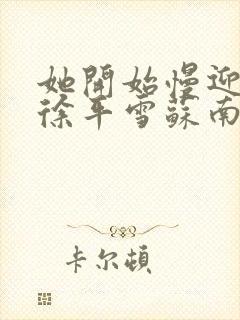 她開始慢迎
徐平雪蘇南
卡尔頓